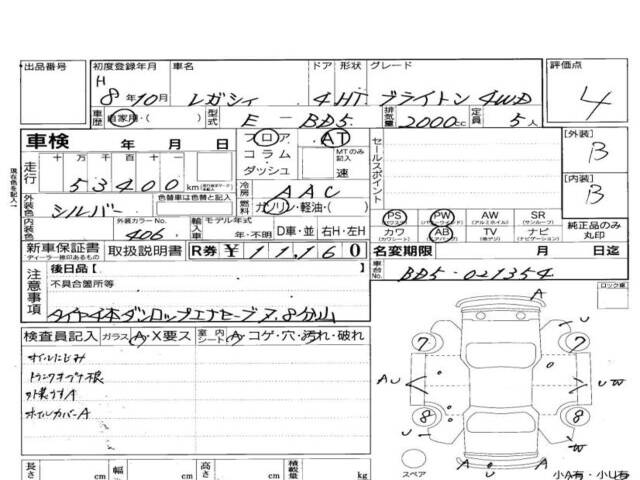 出品番号 初度登録年月 車名 ドア 形状 グレード 評価点
H 8年10月 レガシィ 4 HT ブライトン 4WD 4
車歴 自家用・( ) 型式 E-BD5 排気量 2000cc 定員 5人
車検 年 月 日 フロア AT
コラム MTのみ記入
ダッシュ 速
走行 十 万 千 百 十 一
53400 km
冷房 AAC
セールスポイント
[外装] B
[内装] B
外装色 シルバー 色替車は色替と記入 燃料 ガソリン・軽油・( )
現在色を記入
内装色 外装カラーNo. 406 輸入車 モデル年式 年・不明 D車・並 右H・左H
PS (パワステ) PW (パワーウインドー) AW (アルミホイル) SR (サンルーフ)
カワ (カワシート) AB (エアバッグ) TV (純デジ) ナビ (ナビゲーション)
純正品のみ丸印
新車保証書 ディーラー捺印あるもの 取扱説明書 R券 ¥11160 名変期限 月 日迄
車台No. BD5-021354
注意事項 後日品[ ]
不具合箇所等
タイヤ4本ダンロップエナセーブ 8分山
ロック車
検査員記入 ガラス A・X要ス 室内シート A・コゲ・穴・汚れ・破れ
オイルにじみ
外装キズA
ホイルカバーA
A
U
7 7
A U U W
8 8
U W
A U A
スペア
小A有・小U有
長さ cm 幅 cm 高さ cm 積載量 kg